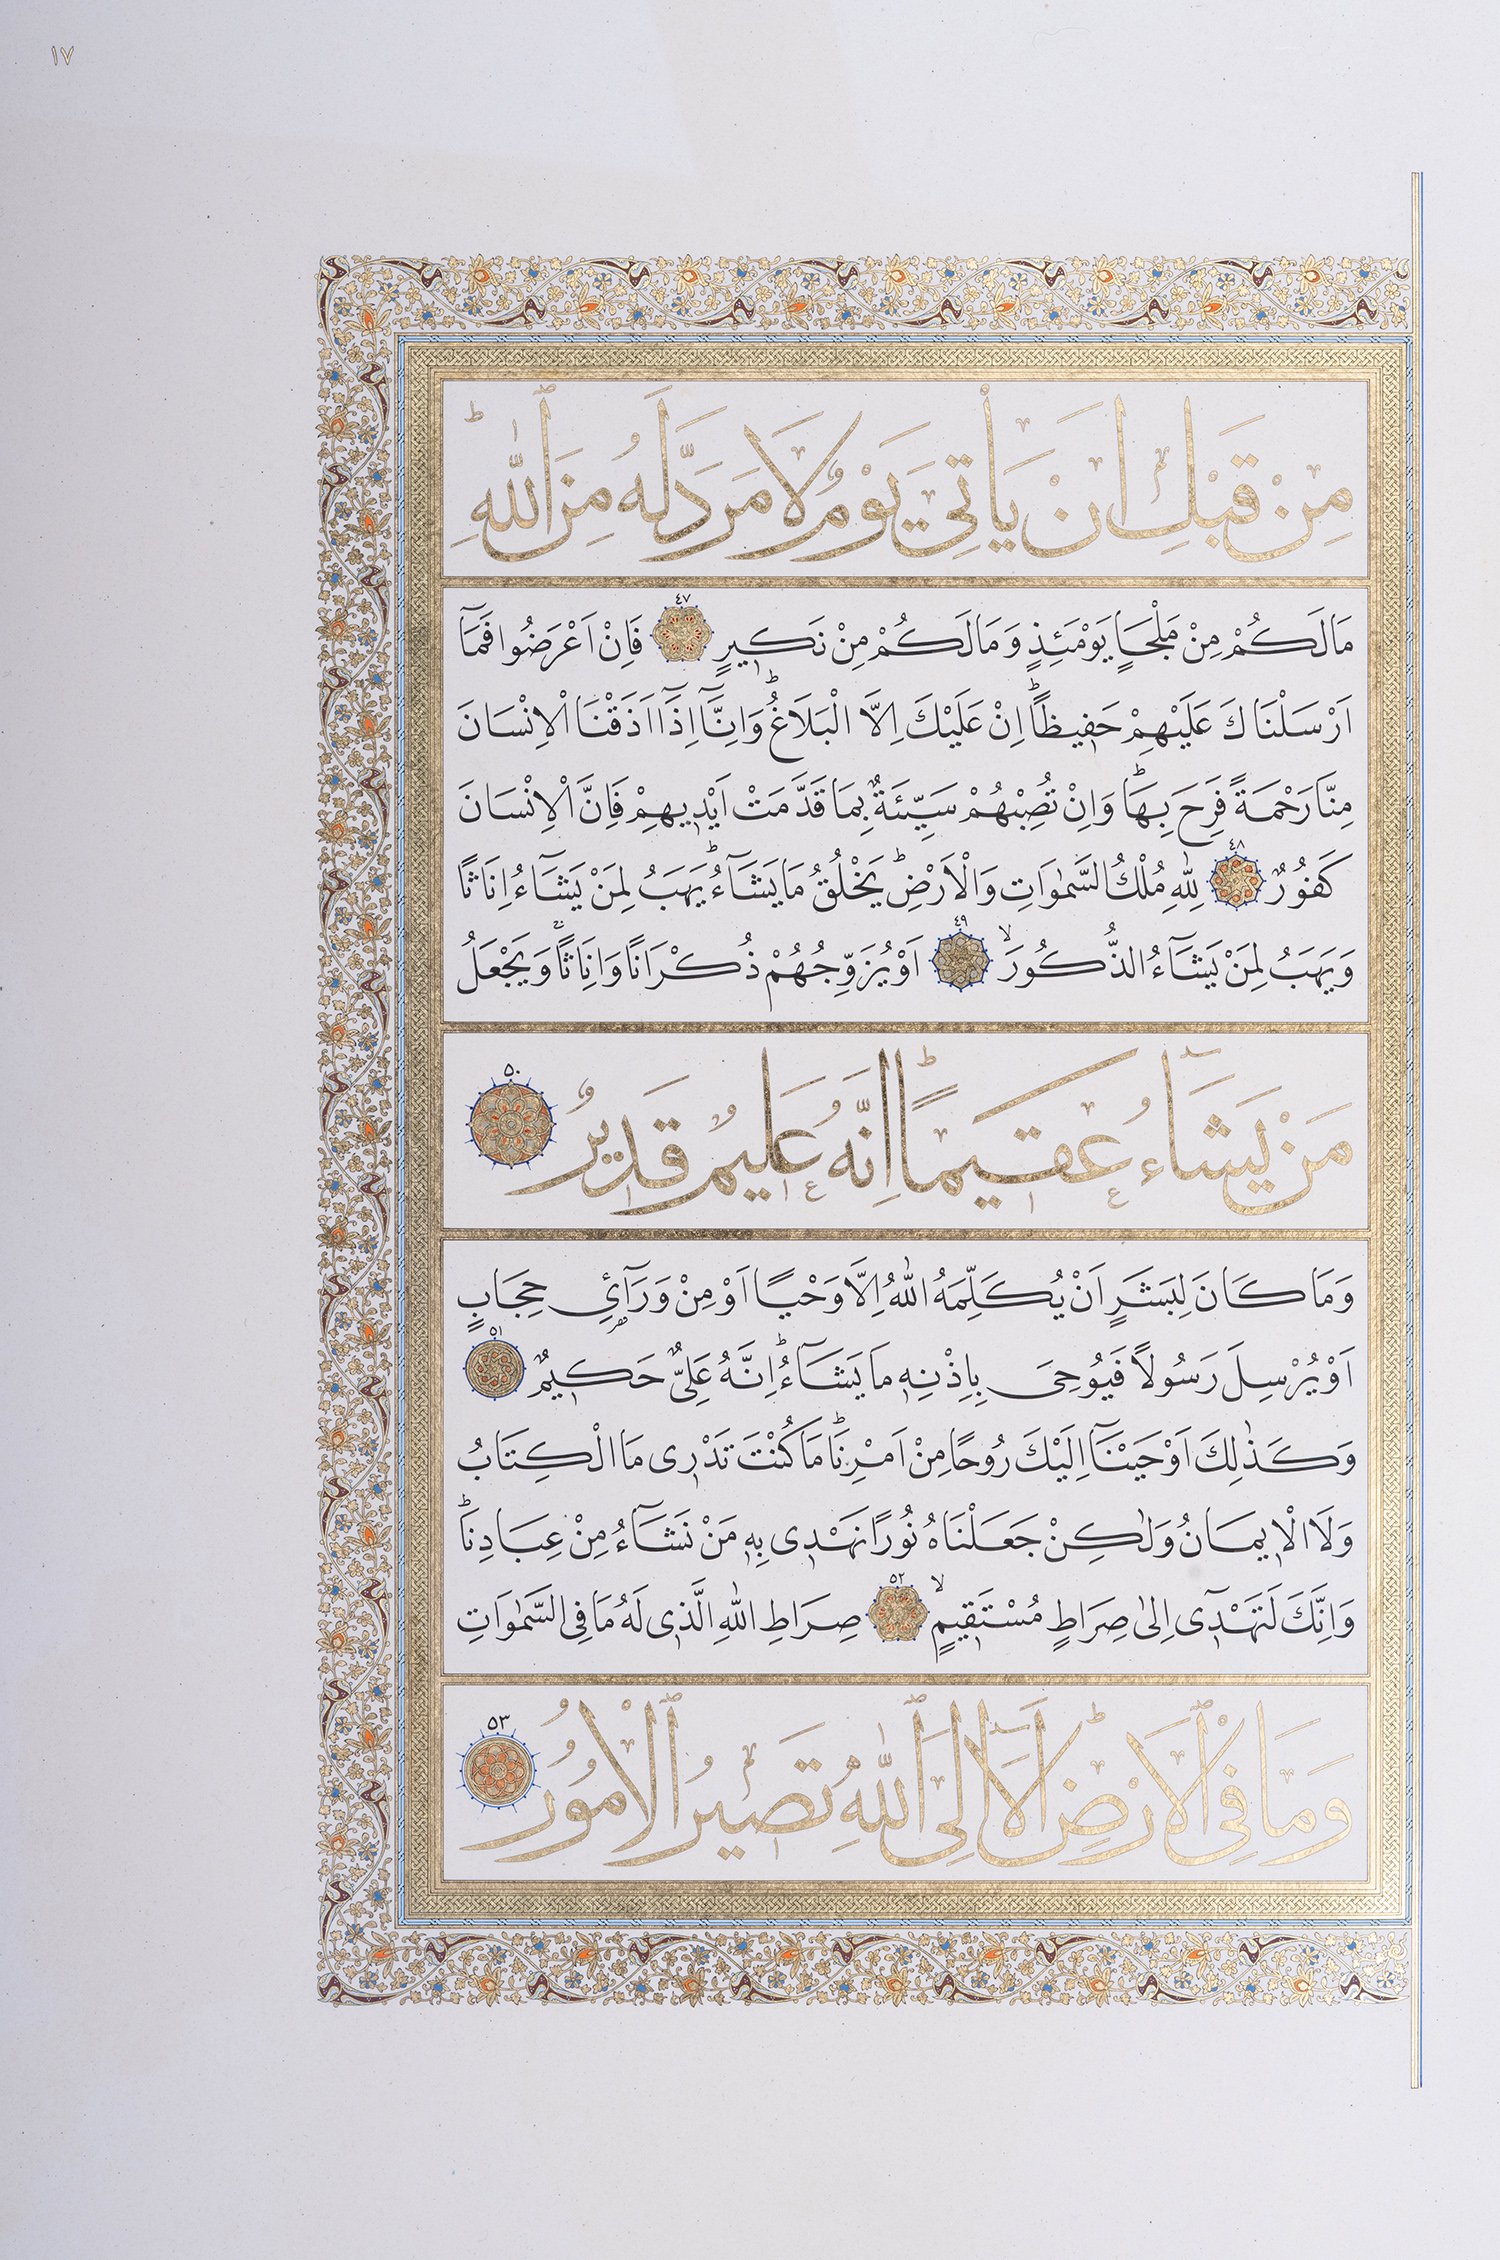 ١٧
مِنْ قَبْلِ اَنْ يَأْتِيَ يَوْمٌ لَا مَرَدَّ لَهُ مِنَ اللّٰهِ ؕ
مَالَكُمْ مِنْ مَلْجَاٍ يَوْمَئِذٍ وَمَالَكُمْ مِنْ نَكٖيرٍ ٤٧ فَاِنْ اَعْرَضُوا فَمَٓا
اَرْسَلْنَاكَ عَلَيْهِمْ حَفٖيظًاؕ اِنْ عَلَيْكَ اِلَّا الْبَلَاغُؕ وَاِنَّٓا اِذَٓا اَذَقْنَا الْاِنْسَانَ
مِنَّا رَحْمَةً فَرِحَ بِهَاؕ وَاِنْ تُصِبْهُمْ سَيِّئَةٌ بِمَا قَدَّمَتْ اَيْدٖيهِمْ فَاِنَّ الْاِنْسَانَ
كَفُورٌ ٤٨ لِلّٰهِ مُلْكُ السَّمٰوَاتِ وَالْاَرْضِؕ يَخْلُقُ مَا يَشَٓاءُؕ يَهَبُ لِمَنْ يَشَٓاءُ اِنَاثًا
وَيَهَبُ لِمَنْ يَشَٓاءُ الذُّكُورَۙ ٤٩ اَوْ يُزَوِّجُهُمْ ذُكْرَانًا وَاِنَاثًاۚ وَيَجْعَلُ
مَنْ يَشَٓاءُ عَقٖيمًاؕ اِنَّهُ عَلٖيمٌ قَدٖيرٌ ٥٠
وَمَا كَانَ لِبَشَرٍ اَنْ يُكَلِّمَهُ اللّٰهُ اِلَّا وَحْيًا اَوْ مِنْ وَرَٓائِ۬ حِجَابٍ
اَوْ يُرْسِلَ رَسُولًا فَيُوحِىَ بِاِذْنِهٖ مَا يَشَٓاءُؕ اِنَّهُ عَلِىٌّ حَكٖيمٌ ٥١
وَكَذٰلِكَ اَوْحَيْنَٓا اِلَيْكَ رُوحًا مِنْ اَمْرِنَاؕ مَا كُنْتَ تَدْرٖى مَا الْكِتَابُ
وَلَا الْاٖيمَانُ وَلٰكِنْ جَعَلْنَاهُ نُورًا نَهْدٖى بِهٖ مَنْ نَشَٓاءُ مِنْ عِبَادِنَاؕ
وَاِنَّكَ لَتَهْدٖٓى اِلٰى صِرَاطٍ مُسْتَقٖيمٍۙ ٥٢ صِرَاطِ اللّٰهِ الَّذٖى لَهُ مَا فِى السَّمٰوَاتِ
وَمَا فِى الْاَرْضِؕ اَلَٓا اِلَى اللّٰهِ تَصٖيرُ الْاُمُورُ ٥٣